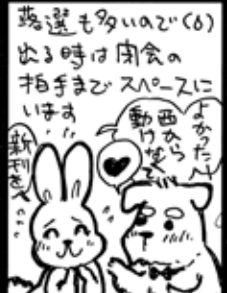 落選も多いので(6)
出る時は閉会の
拍手までスペースに
います
よかった〜
西から
動けなくて
新刊を〜